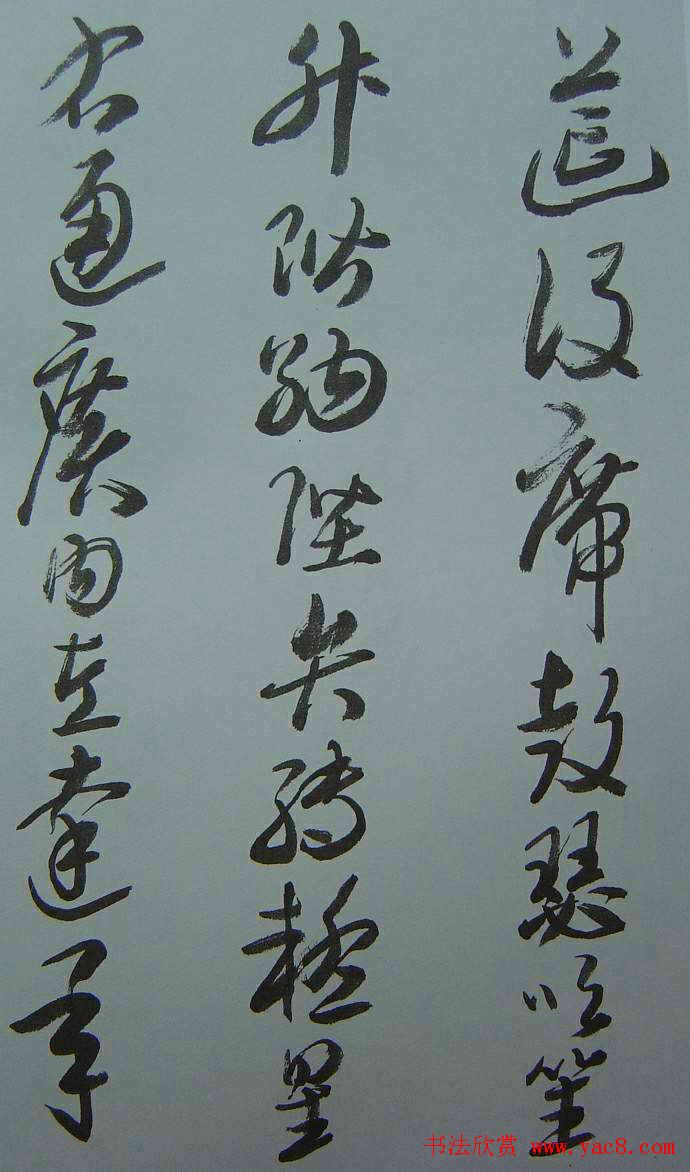 筵設席鼓瑟吹笙
升階納陛弁轉疑星
右通廣內左達承
书法欣赏 www.yac8.com